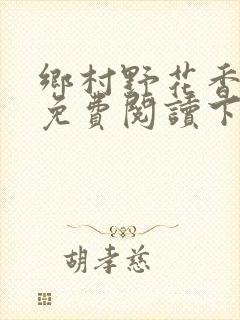 鄉村野花香
免費閱讀下
胡孝慈